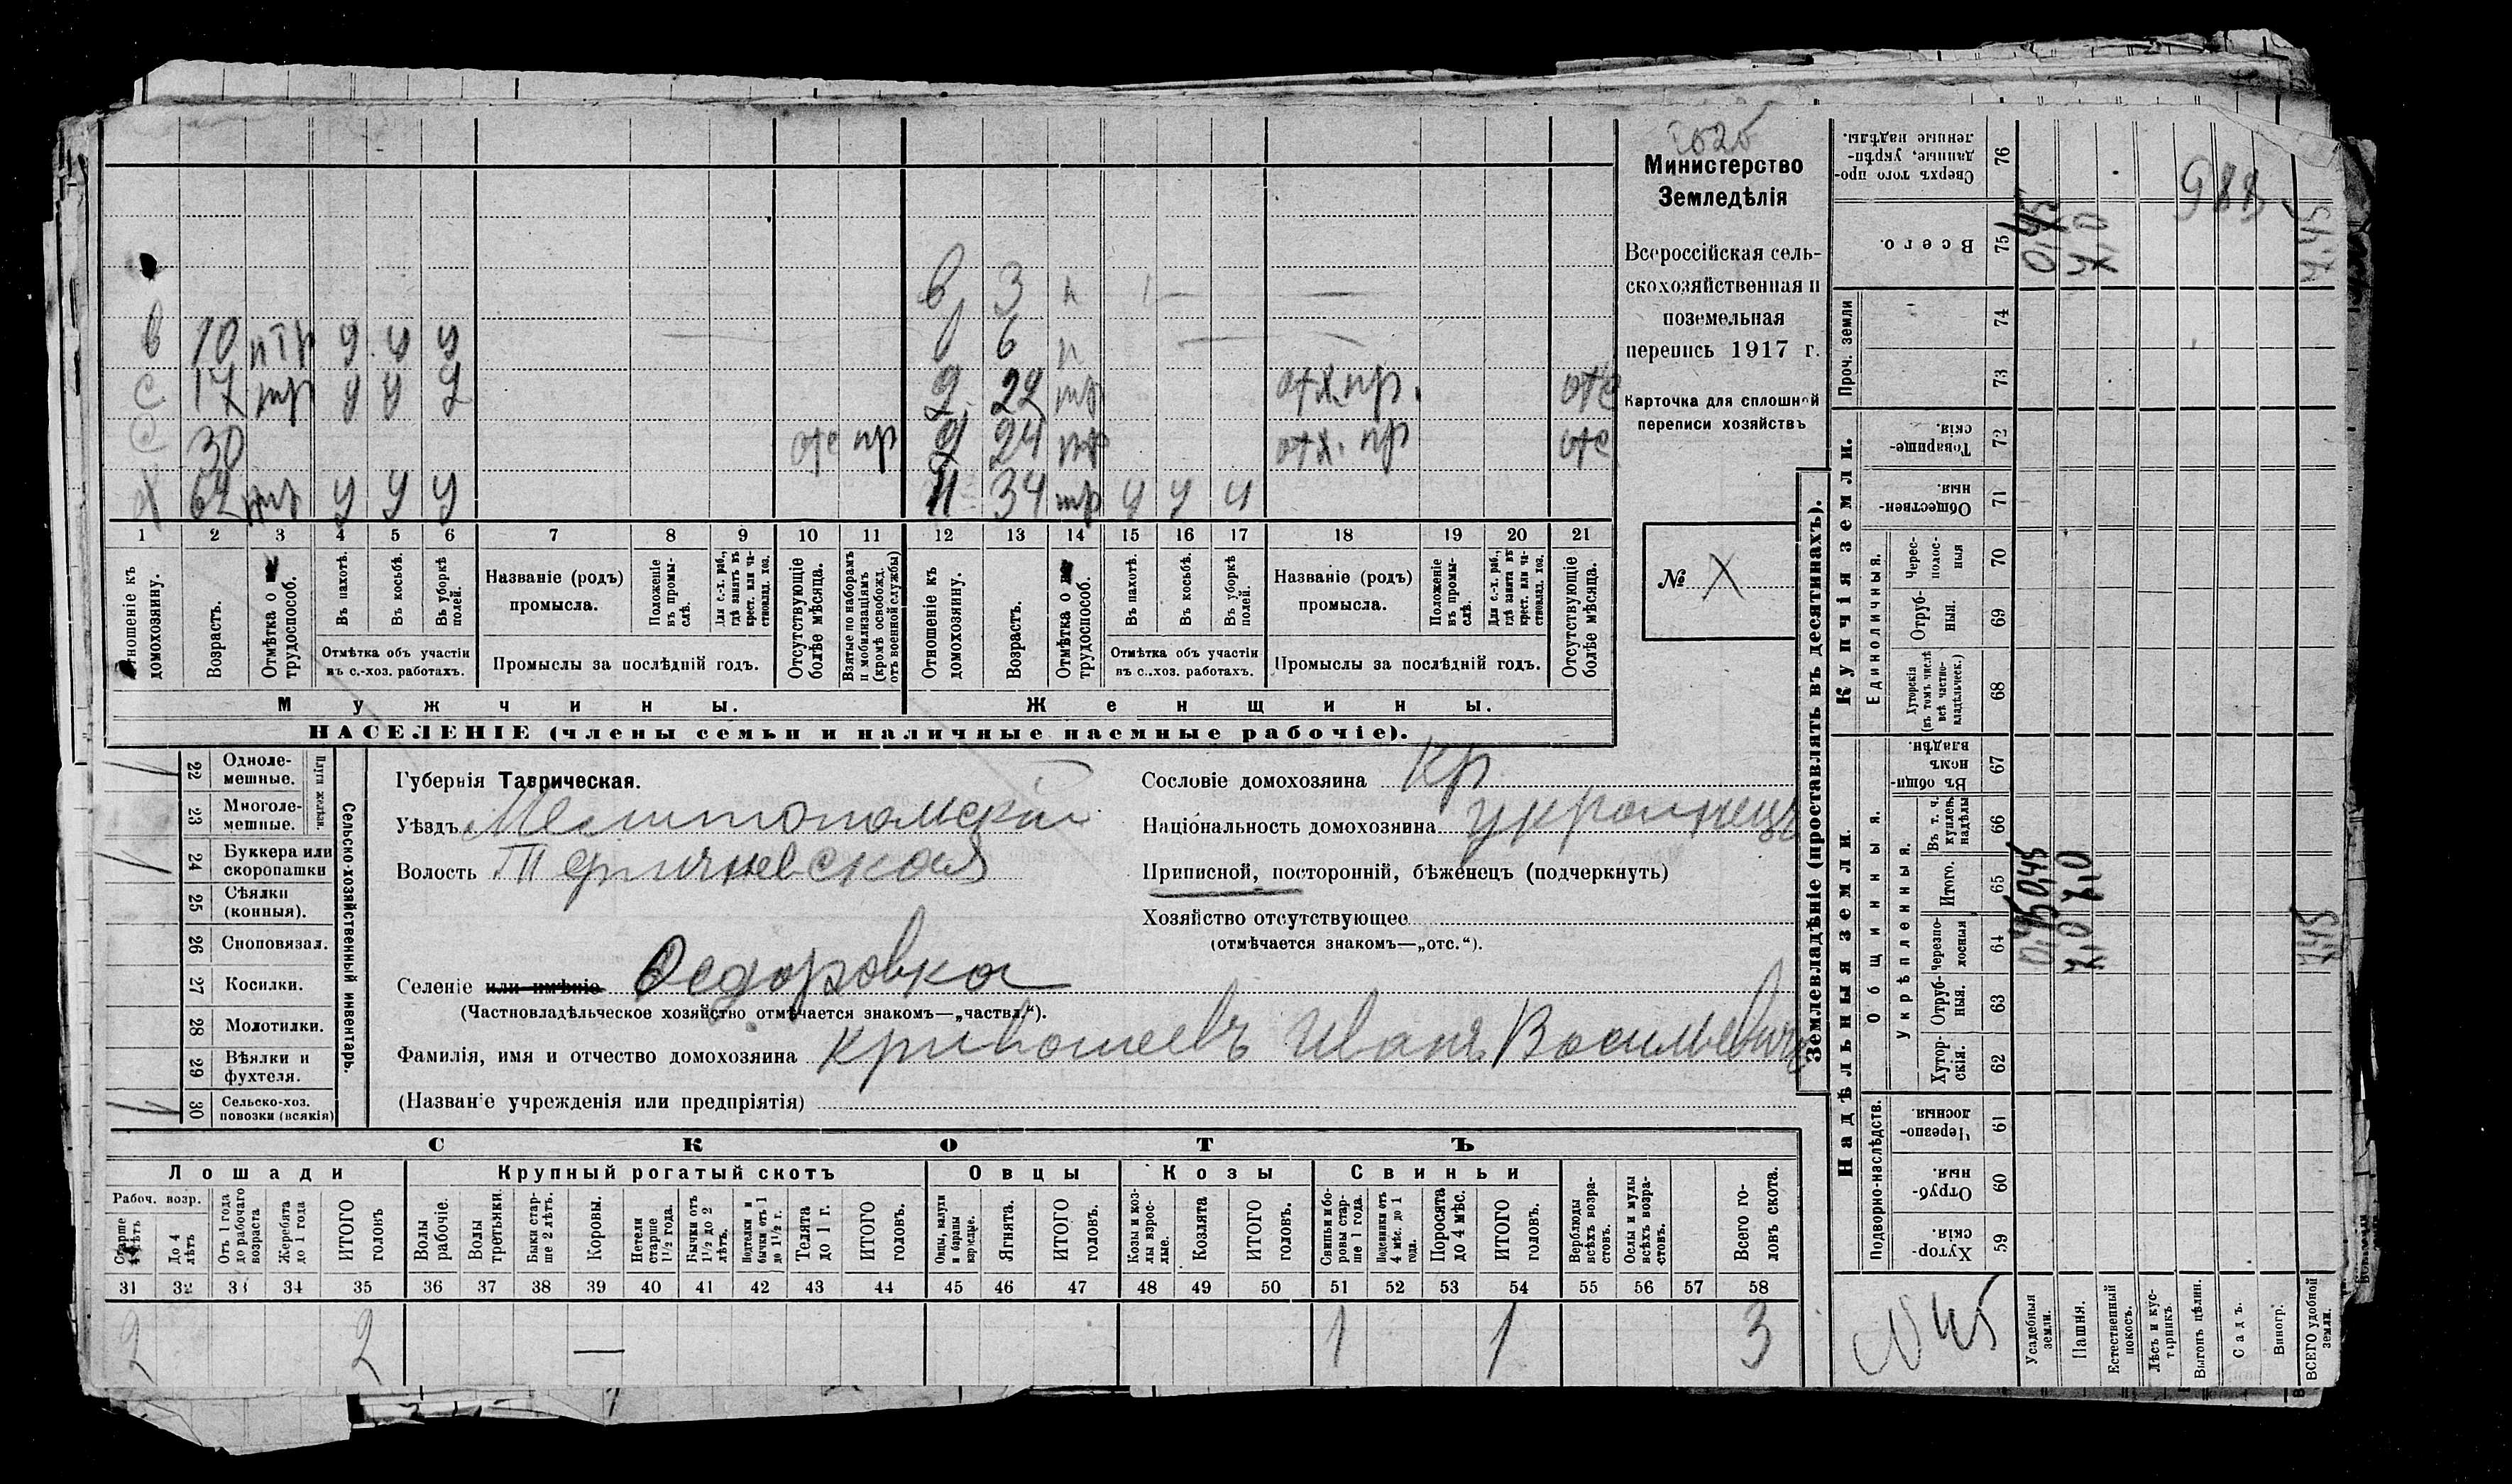 Министерство
Земледѣлія
Всероссійская сель-
скохозяйственная и
поземельная
перепись 1917 г.
Карточка для сплошной
переписи хозяйствъ
№ X
в 3 п
в 10 птр у у у
6 п
с 17 тр у у у
д 22 тр отх. пр. отс
с 30 отс пр
д 24 тр отх. пр отс
х 64 птр у у у
н 34 тр у у у
1 2 3 4 5 6 7 8 9 10 11 12 13 14 15 16 17 18 19 20 21
Отношеніе къ домохозяину.
Возрастъ.
Отмѣтка о трудоспособ.
Въ пахотѣ.
Въ косьбѣ.
Въ уборкѣ полей.
Отмѣтка объ участіи
въ с.-хоз. работахъ.
Названіе (родъ)
промысла.
Положеніе въ промы-слѣ.
Для с.-х. раб., гдѣ занятъ въ крест. или ча-стновлад. хоз.
Промыслы за послѣдній годъ.
Отсутствующіе болѣе мѣсяца.
Взятые по наборамъ и мобилизаціямъ (кромѣ освобожд. отъ военной службы)
Отношеніе къ домохозяину.
Возрастъ.
Отмѣтка о трудоспособ.
Въ пахотѣ.
Въ косьбѣ.
Въ уборкѣ полей.
Отмѣтка объ участіи
въ с.-хоз. работахъ.
Названіе (родъ)
промысла.
Положеніе въ промы-слѣ.
Для с.-х. раб., гдѣ занята въ крест. или ча-стновлад. хоз.
Промыслы за послѣдній годъ.
Отсутствующіе болѣе мѣсяца.
Мужчины.
Женщины.
НАСЕЛЕНІЕ (члены семьи и наличные наемные рабочіе).
22 Однолемешные.
23 Многолемешные.
Плуги желѣзн.
24 Буккера или скоропашки
25 Сѣялки (конныя).
26 Сноповязал.
27 Косилки.
28 Молотилки.
29 Вѣялки и фухтеля.
30 Сельско-хоз. повозки (всякія)
Сельско-хозяйственный инвентарь.
Губернія Таврическая.
Уѣздъ Мелитопольскій
Волость
Селеніе или имѣніе Федоровка
(Частновладѣльческое хозяйство отмѣчается знакомъ—„частвл.“).
Фамилія, имя и отчество домохозяина Кривошеевъ Иванъ Васильевичъ
(Названіе учрежденія или предпріятія)
Сословіе домохозяина Кр
Національность домохозяина украинецъ
Приписной, посторонній, бѣженецъ (подчеркнуть)
Хозяйство отсутствующее
(отмѣчается знакомъ—„отс.“).
СКОТЪ
Лошади
Крупный рогатый скотъ
Овцы
Козы
Свиньи
Рабоч. возр.
Старше 4 лѣтъ
До 4 лѣтъ
Отъ 1 года до рабочаго возраста
Жеребята до 1 года
ИТОГО головъ
Волы рабочіе.
Волы третьяки.
Быки стар-ше 2 лѣтъ.
Коровы.
Нетели старше 1½ года.
Бычки отъ 1½ до 2 лѣтъ.
Подтелки и бычки отъ 1 до 1½ г.
Телята до 1 г.
ИТОГО головъ.
Овцы, валухи и бараны взрослые.
Ягнята.
ИТОГО головъ.
Козы и коз-лы взрос-лые.
Козлята
ИТОГО головъ.
Свиньи и бо-ровы стар-ше 1 года.
Подсвинки отъ 4 мѣс. до 1 года.
Поросята до 4 мѣс.
ИТОГО головъ.
Верблюды всѣхъ возра-стовъ.
Ослы и мулы всѣхъ возра-стовъ.
Всего го-ловъ скота.
31 32 33 34 35 36 37 38 39 40 41 42 43 44 45 46 47 48 49 50 51 52 53 54 55 56 57 58
2 2 — 1 1 3
Землевладѣніе (проставлять въ десятинахъ).
Надѣльныя земли.
Купчія земли.
Проч. земли
Подворно-наслѣдств.
Общинныя.
Укрѣпленныя.
Единоличныя.
59 Хутор-скія.
60 Отруб-ныя.
61 Черезпо-лосныя
62 Хутор-скія.
63 Отруб-ныя.
64 Черезпо-лосныя
65 Итого.
66 Въ т. ч. куплен. надѣлы
67 Въ общи-номъ владѣн.
68 Хуторскія (въ томъ числѣ всѣ частно-владѣльческ.)
69 Отруб-ныя.
70 Черес-полос-ныя
71 Обществен-ныя.
72 Товарище-скія.
73
74
75 Всего.
76 Сверхъ того про-данные, укрѣп-ленные надѣлы.
Усадебныя земли.
0,45 0,45 0,45
Пашня.
7,0 7,0 7,0
Естественный покосъ.
Лѣсъ и кус-тарникъ.
Выгонъ цѣлин.
Садъ.
Виногр.
ВСЕГО удобной земли.
7,45 7,45